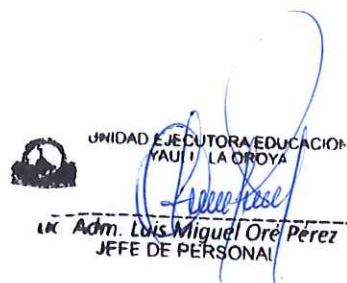 UNIDAD EJECUTORA EDUCACION
YAULI LA OROYA
Lic Adm. Luis Miguel Oré Pérez
JEFE DE PERSONAL